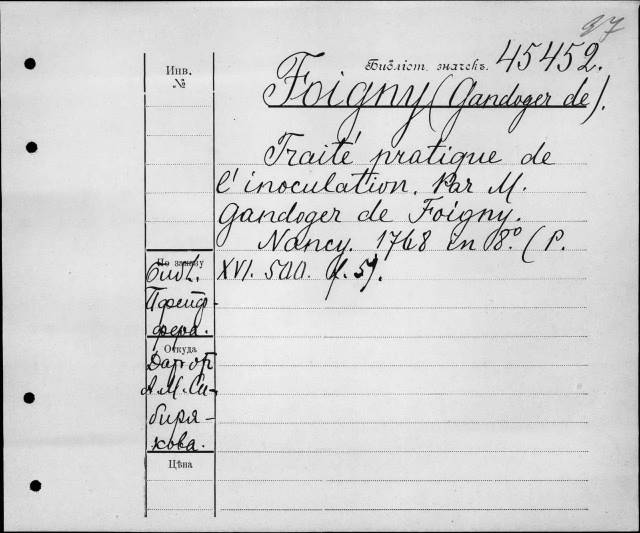 37
Инв.
№
Библіот. значекъ. 45452.
Foigny (Gandoger de).
Traité pratique de
l'inoculation. Par M.
Gandoger de Foigny.
Nancy. 1768 in 8.° (P.
По заказу
Библ. XVI. 500. f. 5).
Пфейф-
фера.
Откуда
Дар от
А. М. Си-
биря-
кова.
Цѣна